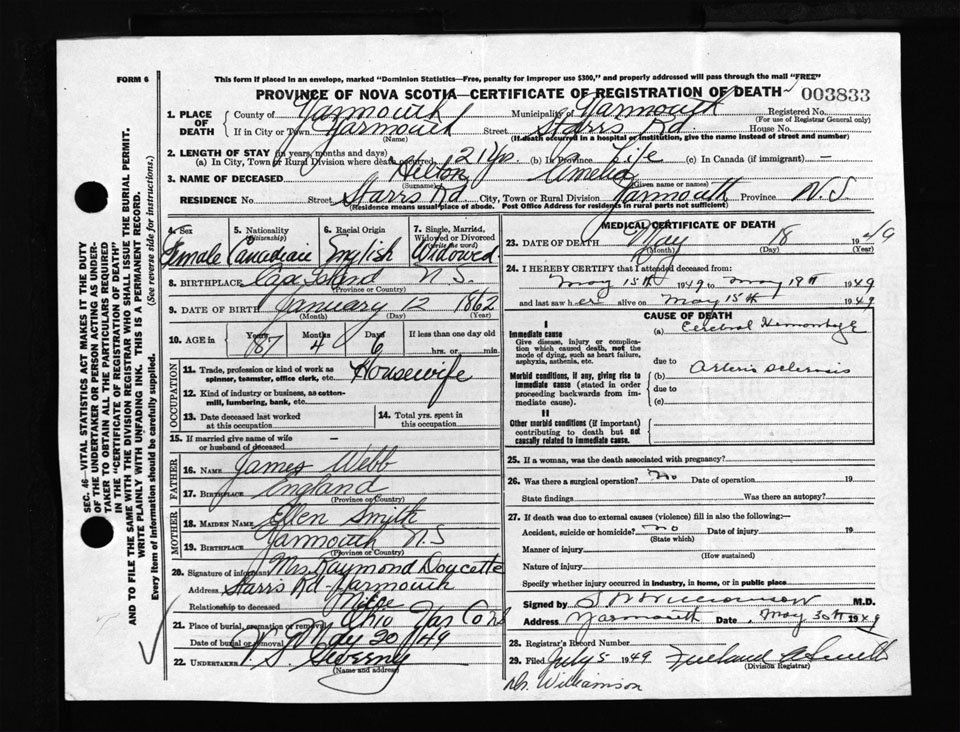 FORM 6
This form if placed in an envelope, marked "Dominion Statistics—Free, penalty for improper use $300," and properly addressed will pass through the mail "FREE"
PROVINCE OF NOVA SCOTIA—CERTIFICATE OF REGISTRATION OF DEATH 003833
1. PLACE OF DEATH
County of Yarmouth Municipality of Yarmouth Registered No.
(For use of Registrar General only)
If in City or Town Yarmouth Street Starrs Rd House No.
(Name) (If death occurred in a hospital or institution, give the name instead of street and number)
2. LENGTH OF STAY (in years, months and days)
(a) In City, Town or Rural Division where death occurred 21 yrs. (b) In Province Life (c) In Canada (if immigrant) —
3. NAME OF DECEASED Hilton Amelia
(Surname) (Given name or names)
RESIDENCE No. Street Starrs Rd City, Town or Rural Division Yarmouth Province N.S.
(Residence means usual place of abode. Post Office Address for residents in rural parts not sufficient)
4. Sex Female
5. Nationality (Citizenship) Canadian
6. Racial Origin English
7. Single, Married, Widowed or Divorced (write the word) Widowed
8. BIRTHPLACE Cape Island N.S.
(Province or Country)
9. DATE OF BIRTH January 12 1862
(Month) (Day) (Year)
10. AGE in Years 87 Months 4 Days 6 If less than one day old
hrs. or min.
OCCUPATION
11. Trade, profession or kind of work as spinner, teamster, office clerk, etc. Housewife
12. Kind of industry or business, as cotton-mill, lumbering, bank, etc.
13. Date deceased last worked at this occupation
14. Total yrs. spent in this occupation
15. If married give name of wife or husband of deceased —
FATHER
16. NAME James Webb
17. BIRTHPLACE England
(Province or Country)
MOTHER
18. MAIDEN NAME Ellen Smith
19. BIRTHPLACE Yarmouth N.S
(Province or Country)
20. Signature of informant Mrs Raymond Doucette
Address Starrs Rd - Yarmouth
Relationship to deceased
21. Place of burial, cremation or removal Ohio Yar Co NS
Date of burial or removal May 20/49
22. UNDERTAKER Sweeny
(Name and address)
MEDICAL CERTIFICATE OF DEATH
23. DATE OF DEATH May 18 1949
(Month) (Day) (Year)
24. I HEREBY CERTIFY that I attended deceased from:
May 15th 1949 to May 18th 1949
and last saw her alive on May 15th 1949
CAUSE OF DEATH
I
Immediate cause (a) Cerebral Hemorrhage
Give disease, injury or complication which caused death, not the mode of dying, such as heart failure, asphyxia, asthenia, etc.
due to
Morbid conditions, if any, giving rise to immediate cause (stated in order proceeding backwards from immediate cause). (b) Arterio sclerosis
due to
(c)
II
Other morbid conditions (if important) contributing to death but not causally related to immediate cause.
25. If a woman, was the death associated with pregnancy?
26. Was there a surgical operation? No Date of operation 19
State findings Was there an autopsy?
27. If death was due to external causes (violence) fill in also the following:—
Accident, suicide or homicide? no Date of injury 19
(State which)
Manner of injury
(How sustained)
Nature of injury
Specify whether injury occurred in industry, in home, or in public place
Signed by Williamson M.D.
Address Yarmouth Date May 30th 1949
28. Registrar's Record Number
29. Filed July 5 1949
(Division Registrar)
Dr. Williamson
SEC. 46—VITAL STATISTICS ACT MAKES IT THE DUTY
OF THE UNDERTAKER OR PERSON ACTING AS UNDER-
TAKER TO OBTAIN ALL THE PARTICULARS REQUIRED
IN THE "CERTIFICATE OF REGISTRATION OF DEATH"
AND TO FILE THE SAME WITH THE DIVISION REGISTRAR WHO SHALL ISSUE THE BURIAL PERMIT.
WRITE PLAINLY WITH UNFADING INK. THIS IS A PERMANENT RECORD.
Every item of information should be carefully supplied. (See reverse side for instructions.)